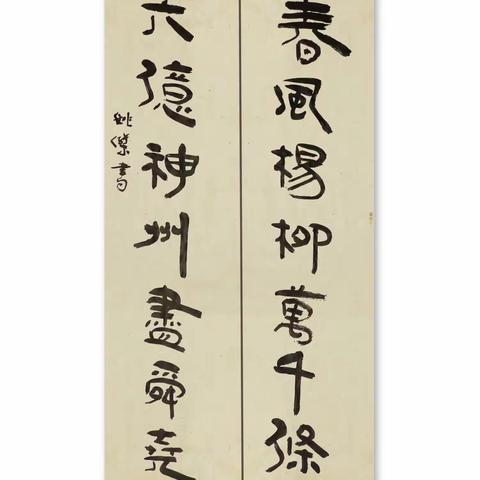 春風楊柳萬千條
六億神州盡舜堯
姚傑書